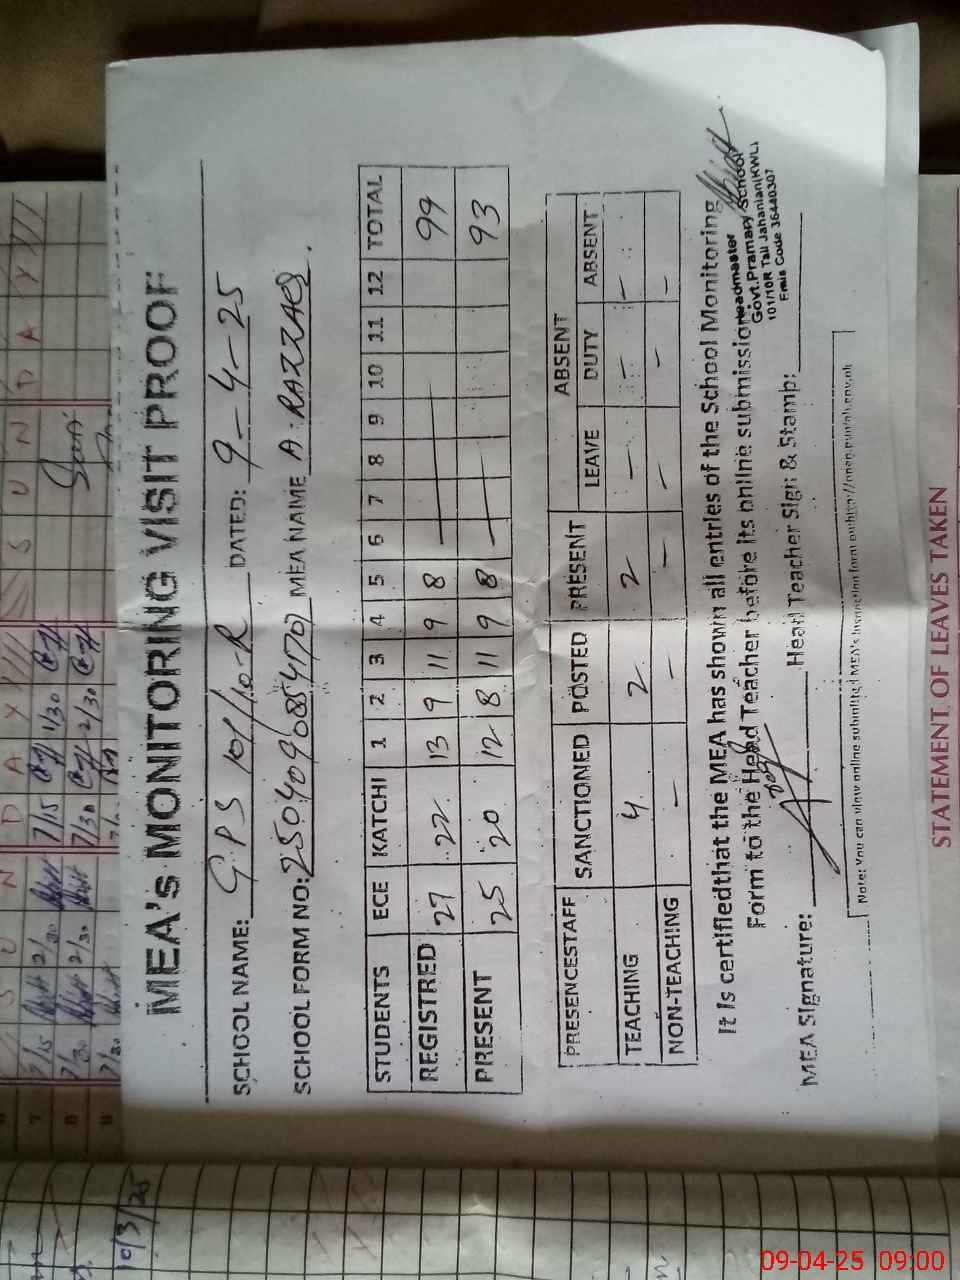 MEA's MONITORING VISIT PROOF
SCHOOL NAME: GPS 101/10-R DATED: 9-4-25
SCHOOL FORM NO: MEA NAME A. RAZZAQ.
STUDENTS ECE KATCHI 1 2 3 4 5 6 7 8 9 10 11 12 TOTAL
REGISTRED 27 22 13 9 11 9 8 99
PRESENT 25 20 12 8 11 9 8 93
PRESENCESTAFF SANCTIONED POSTED PRESENT ABSENT
LEAVE DUTY ABSENT
TEACHING 4 2 2 - - -
NON-TEACHING - - - - - -
It Is certifiedthat the MEA has shown all entries of the School Monitoring
Form to the Head Teacher before its online submission
Headmaster
Govt.Pramary School
101/10R Tall Jahanian(KWL)
Emis Code 36440307
MEA Signature: Head Teacher Sign & Stamp:
Note: You can view online submitted MEA's Inspection form on
STATEMENT OF LEAVES TAKEN
SUNDAY
SUNDAY
7/15 2/30 7/15 1/30
7/30 2/30 7/30 2/30
7/30
10/3/25
09-04-25 09:00